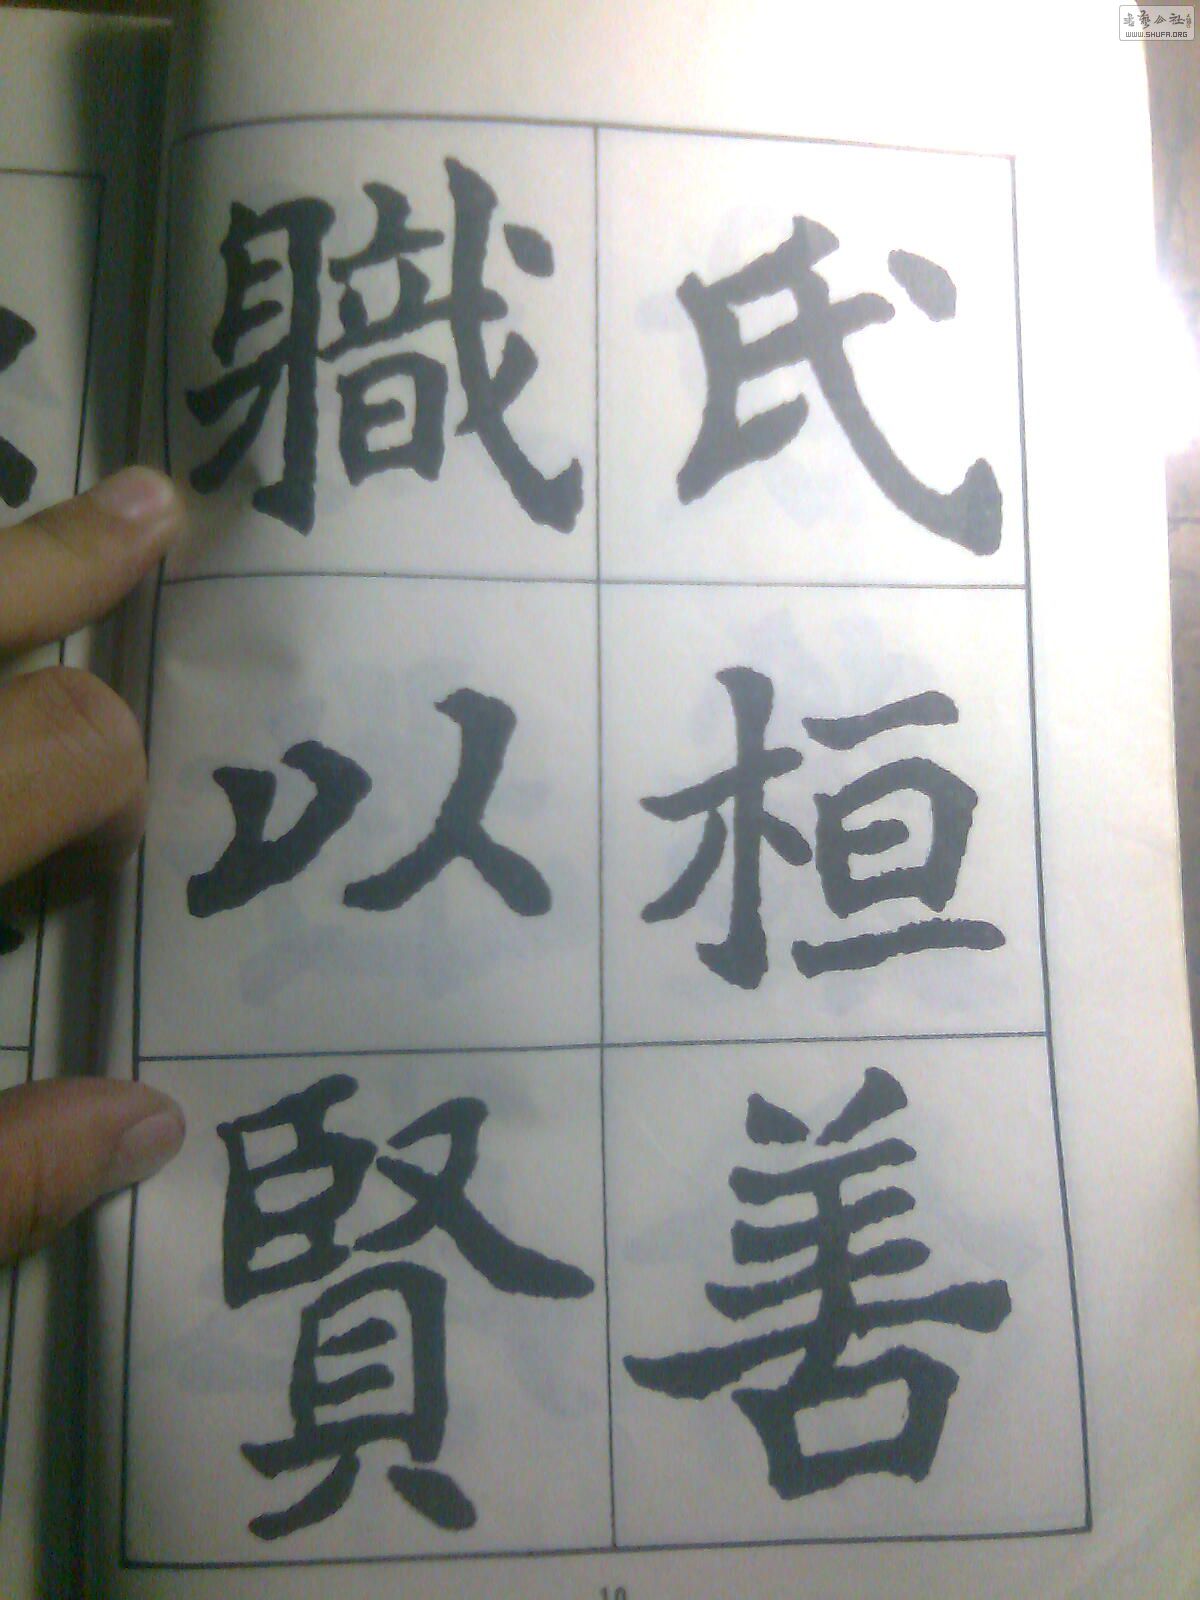 氏桓善
軄以賢
10
書藝公社
WWW.SHUFA.ORG